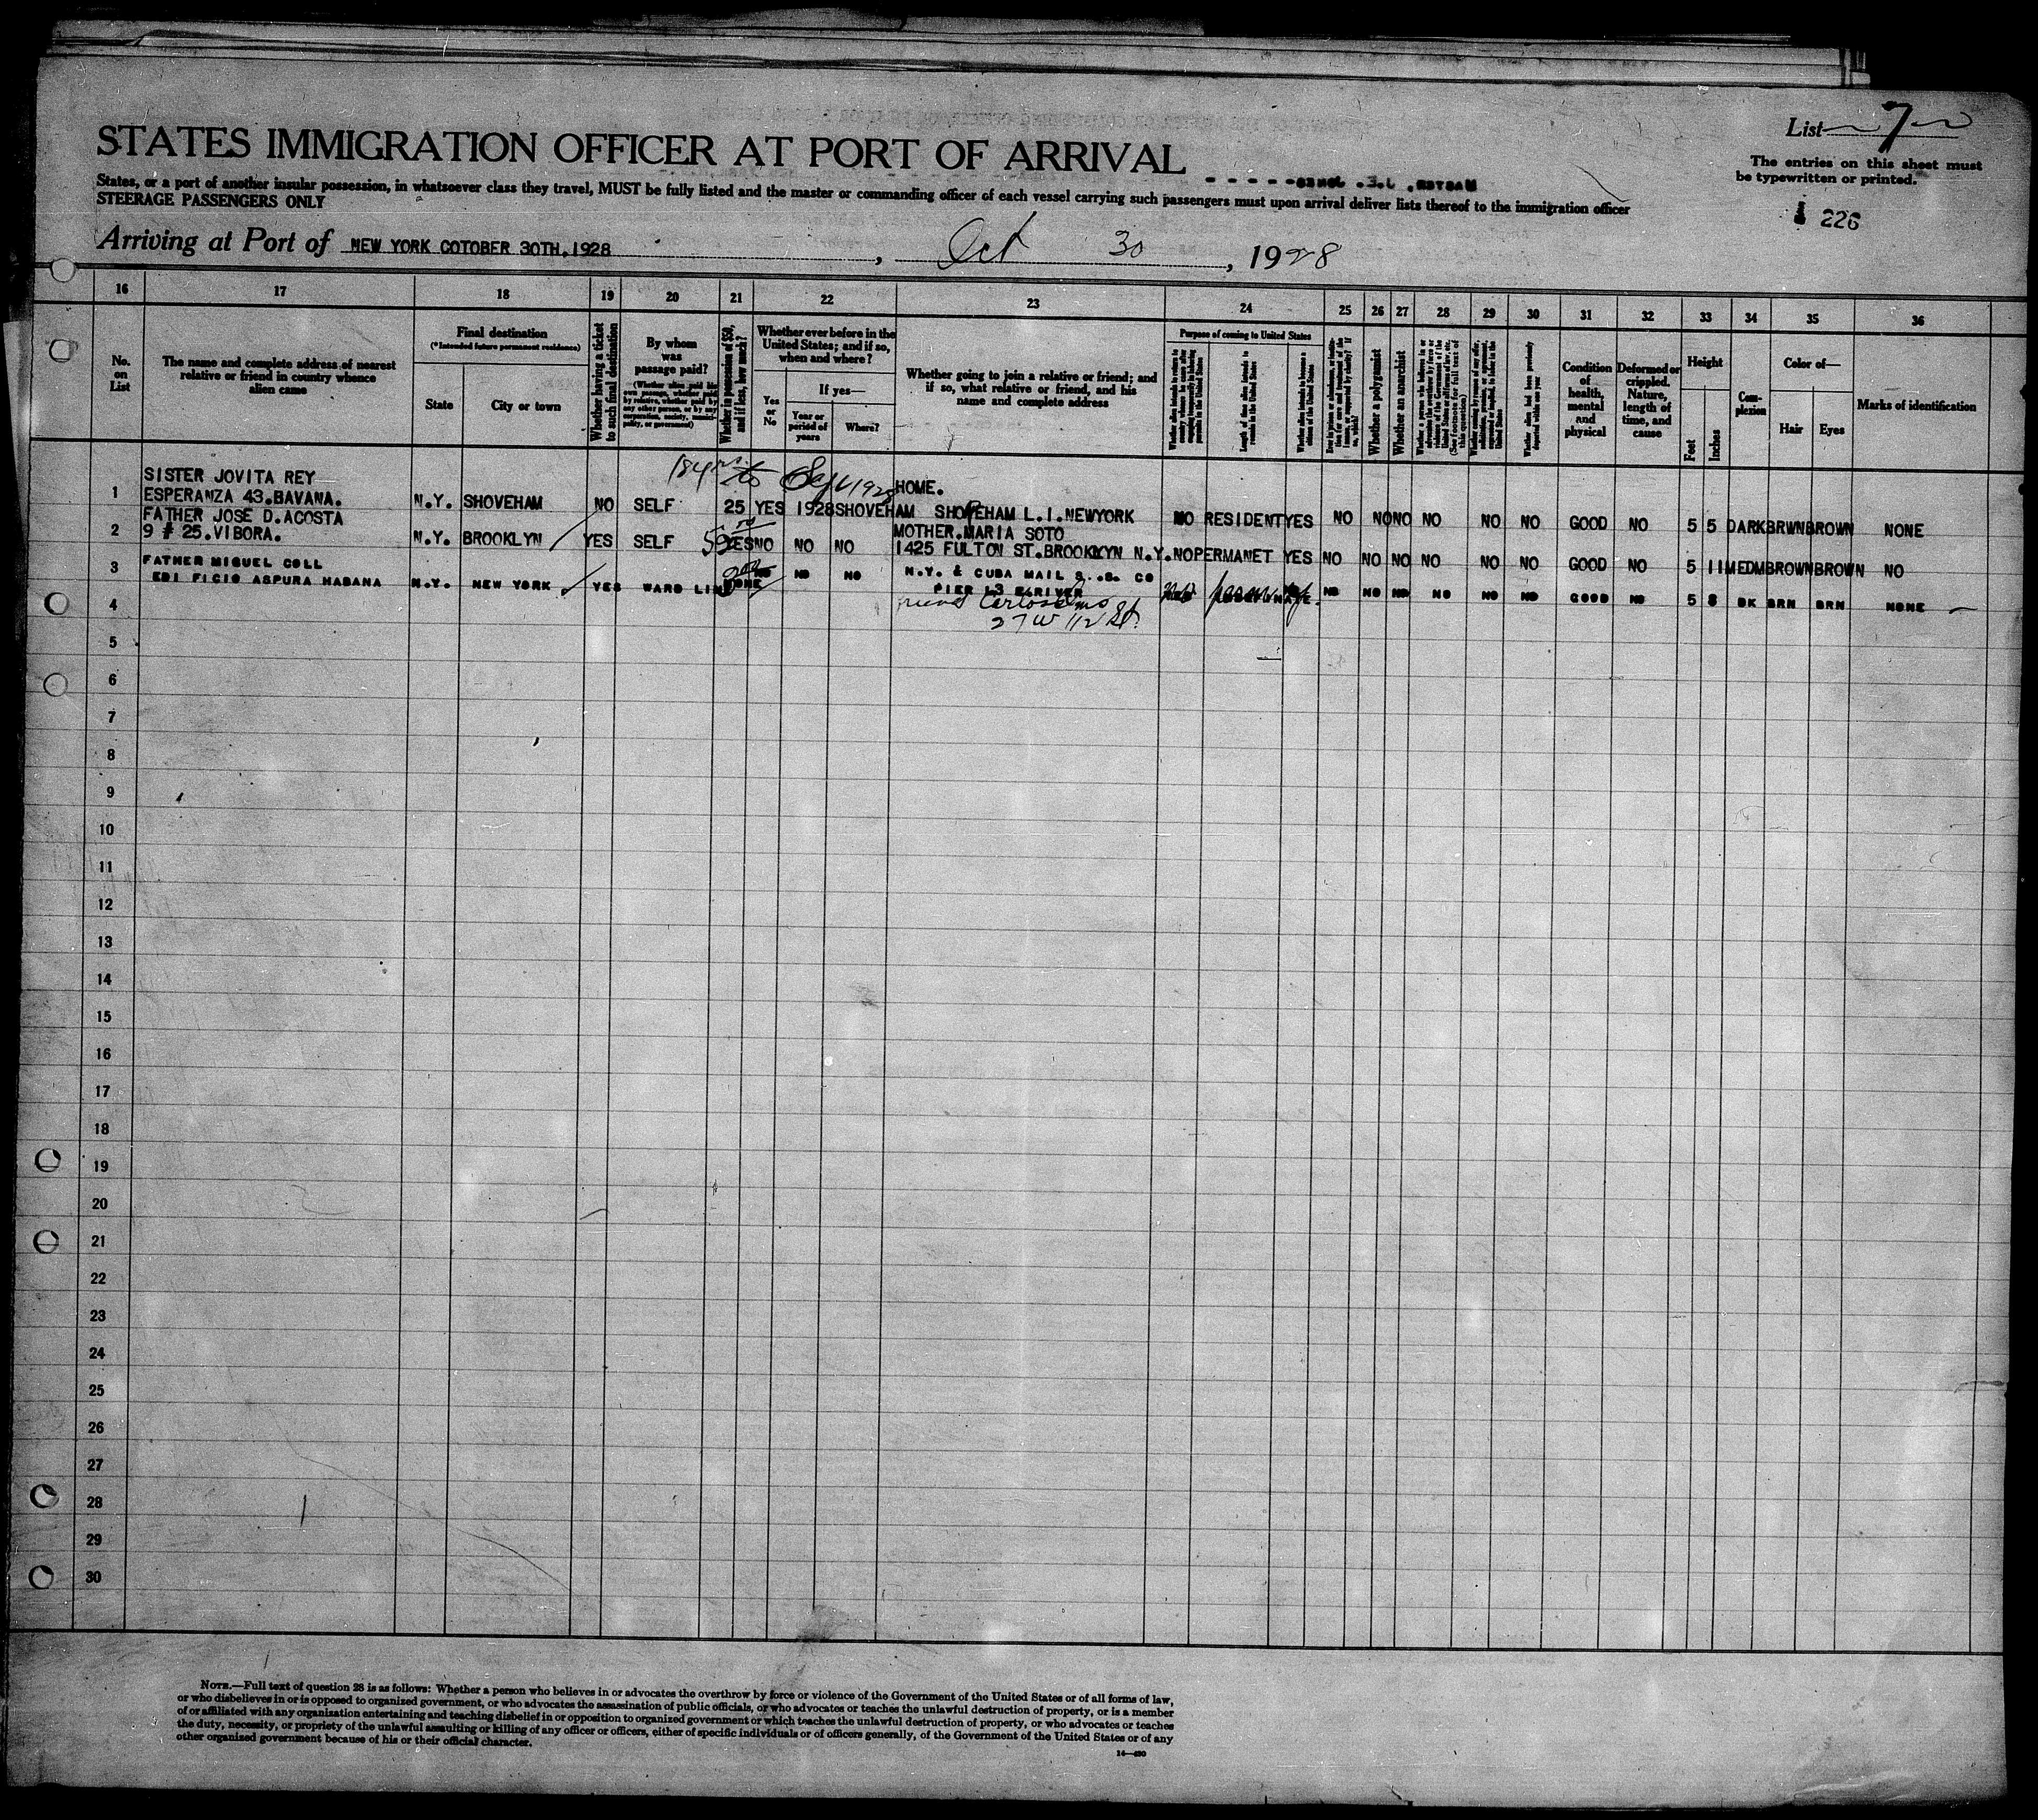 List 7
STATES IMMIGRATION OFFICER AT PORT OF ARRIVAL
The entries on this sheet must
be typewritten or printed.
States, or a port of another insular possession, in whatsoever class they travel, MUST be fully listed and the master or commanding officer of each vessel carrying such passengers must upon arrival deliver lists thereof to the immigration officer
STEERAGE PASSENGERS ONLY
226
Arriving at Port of NEW YORK COTOBER 30TH.1928, Oct 30, 1928
16 17 18 19 20 21 22 23 24 25 26 27 28 29 30 31 32 33 34 35 36
No. on List
The name and complete address of nearest
relative or friend in country whence
alien came
Final destination
(*Intended future permanent residence)
State
City or town
Whether having a ticket
to such final destination
By whom
was
passage paid?
(Whether alien paid his
own passage, whether paid
by relative, whether paid by
any other person, or by any
corporation, society, munici-
pality, or government)
Whether in possession of $50,
and if less, how much?
Whether ever before in the
United States; and if so,
when and where?
Yes
or
No
If yes—
Year or
period of
years
Where?
Whether going to join a relative or friend; and
if so, what relative or friend, and his
name and complete address
Purpose of coming to United States
Length of time alien intends to
remain in the United States
Whether alien intends to become a
citizen of the United States
Whether a polygamist
Whether an anarchist
Whether alien had been previously
deported within one year
Condition
of
health,
mental
and
physical
Deformed or
crippled.
Nature,
length of
time, and
cause
Height
Feet
Inches
Com-
plexion
Color of—
Hair
Eyes
Marks of identification
SISTER JOVITA REY
HOME.
1 ESPERANZA 43.BAVANA. N.Y. SHOVEHAM NO SELF 25 YES 1928 SHOVEHAM SHOREHAM L.I.NEWYORK NO RESIDENT YES NO NO NO NO NO NO GOOD NO 5 5 DARK BRWN BROWN NONE
FATHER JOSE D.ACOSTA
MOTHER.MARIA SOTO
2 9 # 25.VIBORA. N.Y. BROOKLYN YES SELF YES NO NO NO 1425 FULTON ST.BROOKLYN N.Y. NO PERMANET YES NO NO NO NO NO NO GOOD NO 5 11 MEDM BROWN BROWN NO
FATHER MIGUEL COLL
N.Y. & CUBA MAIL S..S. CO
3 EDI FICIO ASPURA HABANA N.Y. NEW YORK YES WARD LINE NONE NO NO NO PIER 13 E.RIVER NO NO NO NO NO NO GOOD NO 5 8 DK BRN BRN NONE
friend
27 W 112 St.
4
5
6
7
8
9
10
11
12
13
14
15
16
17
18
19
20
21
22
23
24
25
26
27
28
29
30
NOTE.—Full text of question 28 is as follows: Whether a person who believes in or advocates the overthrow by force or violence of the Government of the United States or of all forms of law,
or who disbelieves in or is opposed to organized government, or who advocates the assassination of public officials, or who advocates or teaches the unlawful destruction of property, or is a member
of or affiliated with any organization entertaining and teaching disbelief in or opposition to organized government or which teaches the unlawful destruction of property, or who advocates or teaches
the duty, necessity, or propriety of the unlawful assaulting or killing of any officer or officers, either of specific individuals or of officers generally, of the Government of the United States or of any
other organized government because of his or their official character.
14—430